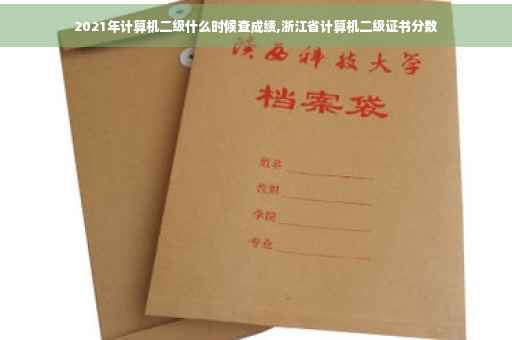 2021年计算机二级什么时候查成绩,浙江省计算机二级证书分数
陕西科技大学
档案袋
姓名
学院
专业